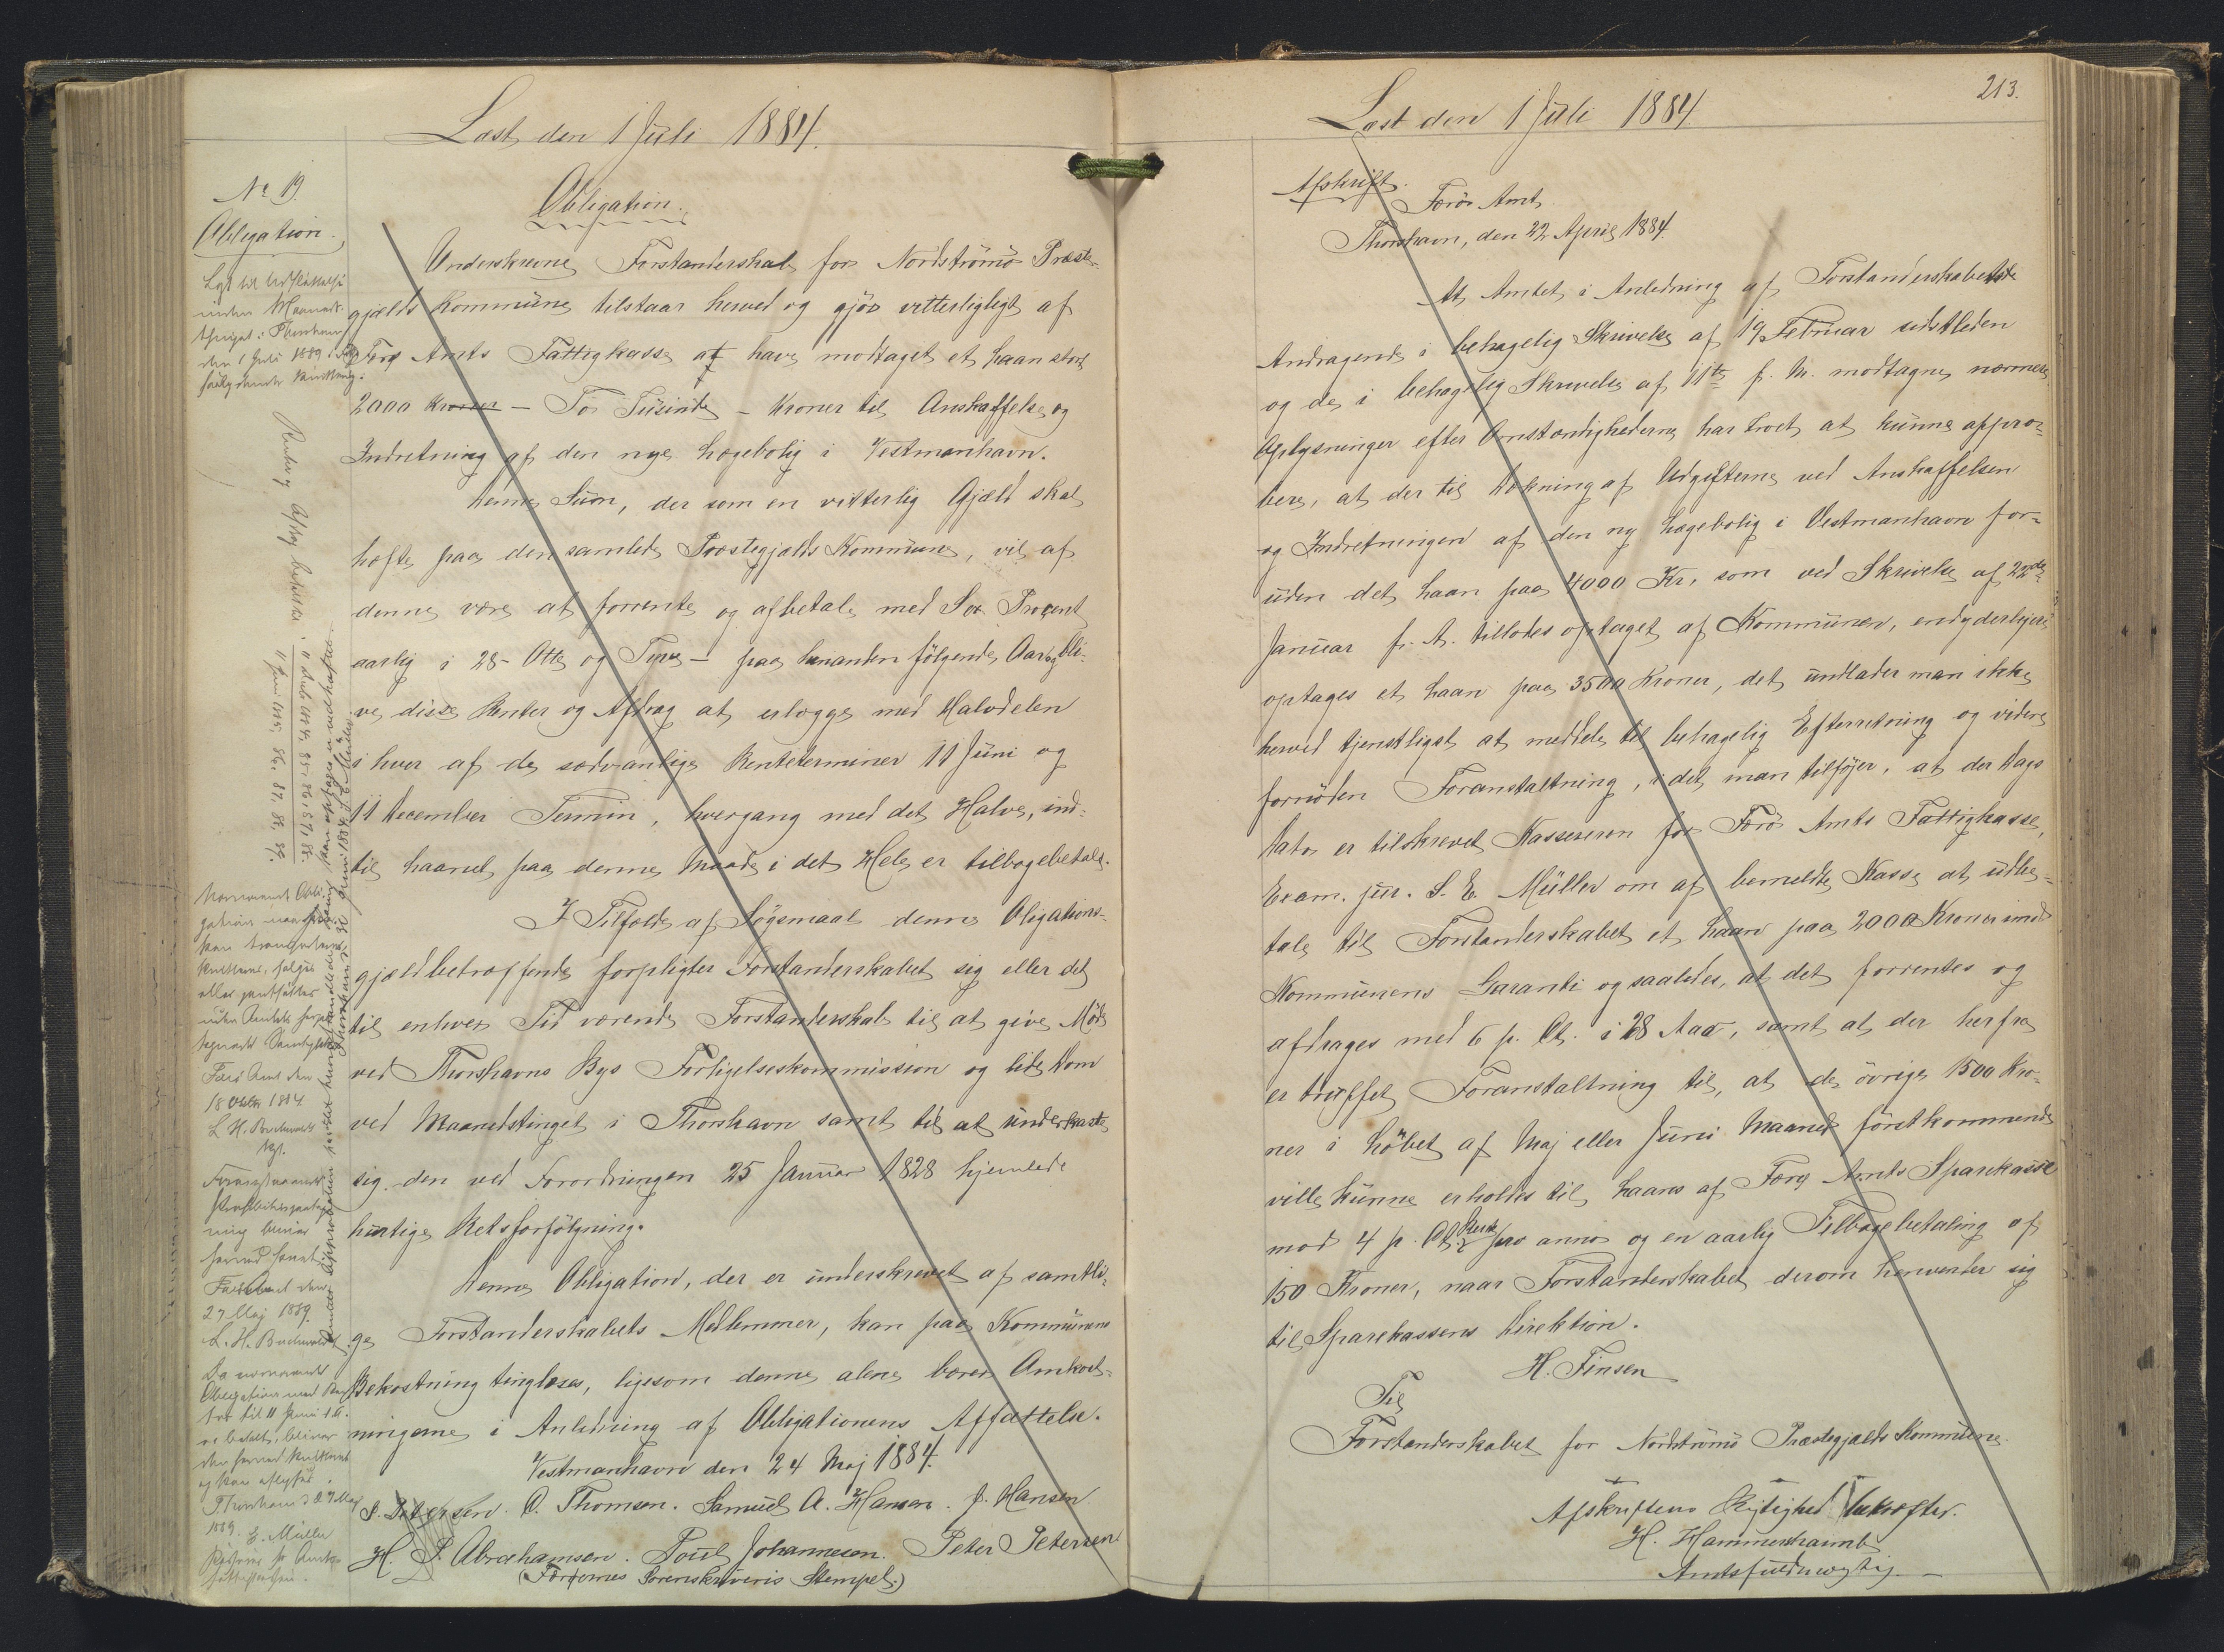 Læst den 1 Juli 1884.
No 19.
Obligation.
Lyst til Udslettelse
inden Maaneds-
thinget i Thorshavn
den 1 Juli 1889
Renter og Afdrag betalte: 11 Decb 1884, 85, 86, 87, 88.
11 Juni 1885, 86, 87, 88, 89.
Nærværende Obli-
gation
kan transporteres,
kvitteres, sælges
eller pantsættes
uden Amtets
Samtykke
Færø Amt den
18 Octbr 1884.
L. H. Buchwaldt
kst.
Færø Amt den
27 Maj 1889.
L. H. Buchwaldt
Da nærværende
Obligation med Ren-
ter til 11 Juni d. A.
er betalt, bliver
den herved kvitteret
og kan aflyses.
Thorshavn d. 27 Maj
1889. S. Müller
Obligation.
Underskrevne Forstanderskab for Nordstrømø Præste-
gjælds Kommune tilstaar herved og gjør vitterligligt af
Færø Amts Fattigkasse at have modtaget et Laan stort
2000 Kroner - To Tusinde - Kroner til Anskaffelse og
Indretning af den nye Lægebolig i Vestmanhavn.
Denne Sum, der som en vitterlig Gjæld skal
hæfte paa den samlede Præstegjælds Kommune, vil af
denne være at forrente og afbetale med Sex Procent
aarlig i 28 - Otte og Tyve - paa hinanden følgende Aar og bli-
ve disse Renter og Afdrag at erlægge med Halvdelen
i hver af de sædvanlige Renteterminer 11 Juni og
11 December Termin, hvergang med det Halve, ind-
til Laanet paa denne Maade i det Hele er tilbagebetalt.
I Tilfælde af Søgsmaal denne Obligations-
gjæld betræffende forpligter Forstanderskabet sig eller det
til enhver Tid værende Forstanderskab til at give Møde
ved Thorshavns Bys Forligelseskommission og lide Dom
ved Maanedstinget i Thorshavn samt til at underkaste
sig den ved Forordningen 25 Januar 1828 hjemlede
hurtige Retsforfølgning.
Denne Obligation, der er underskrevet af samtli-
ge Forstanderskabets Medlemmer, kan paa Kommunens
Bekostning tinglæses, ligesom denne alene bærer Omkost-
ningerne i Anledning af Obligationens Affattelse.
Vestmanhavn den 24 Maj 1884.
P. Petersen. O. Thomsen. Samuel A. Hansen. J. Hansen
H. P. Abrahamsen. Poul Johannesen. Peter Petersen
(Færøernes Sorenskriveris Stempel.)
213.
Læst den 1 Juli 1884
Afskrift.
Færø Amt
Thorshavn, den 22 April 1884.
At Amtet i Anledning af Forstanderskabets
Andragende i behagelig Skrivelse af 19 Februar sidstleden
og de i behagelig Skrivelse af 11te f. M. modtagne nærmere
Oplysninger efter Omstændighederne har troet at kunne appro-
bere, at der til Dækning af Udgifterne ved Anskaffelsen
og Indretningen af den ny Lægebolig i Vestmanhavn for-
uden det Laan paa 4000 Kr, som ved Skrivelse af 22de
Januar f. A. tillodes optaget af Kommunen, endyderligere
optages et Laan paa 3500 Kroner, det undlader man ikke
herved tjenstligst at meddele til behagelig Efterretning og videre
fornøden Foranstaltning, idet man tilføjer, at der Dags
Dato er tilskrevet Kassereren for Færø Amts Fattigkasse,
Exam. jur. S. E. Müller om af bemeldte Kasse at udbe-
tale til Forstanderskabet et Laan paa 2000 Kroner imod
Kommunens Garanti og saaledes, at det forrentes og
afdrages med 6 p. Ct. i 28 Aar, samt at der herfra
er truffet Foranstaltning til, at de øvrige 1500 Kro-
ner i Løbet af Maj eller Juni Maaned førstkommende
ville kunne erholdes til Laans af Færø Amts Sparekasse
mod 4 p. Ct. Rente pro anno og en aarlig Tilbagebetaling af
150 Kroner, naar Forstanderskabet derom henvender sig
til Sparekassens Direktion.
H. Finsen
Til
Forstanderskabet for Nordstrømø Præstegjælds Kommune.
Afskriftens Rigtighed bekræfter.
H. Hammershaimb
Amtsfuldmægtig.